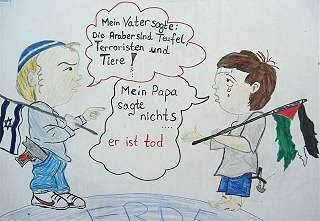 Mein Vater sagte:
Die Araber sind Teufel,
Terroristen und
Tiere!
Mein Papa
sagte
nichts
....
er ist tod
ERDE